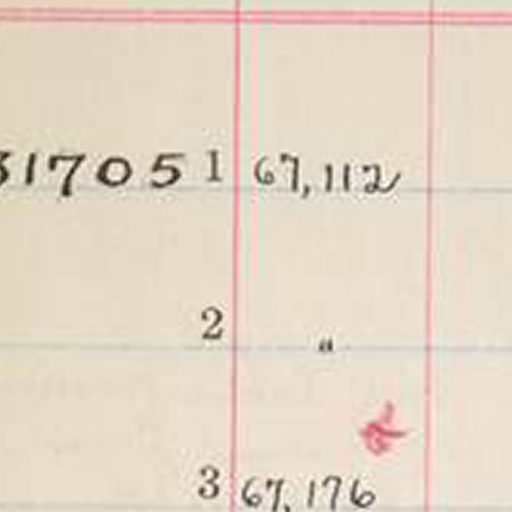 317051 67,112
2 "
3 67,176